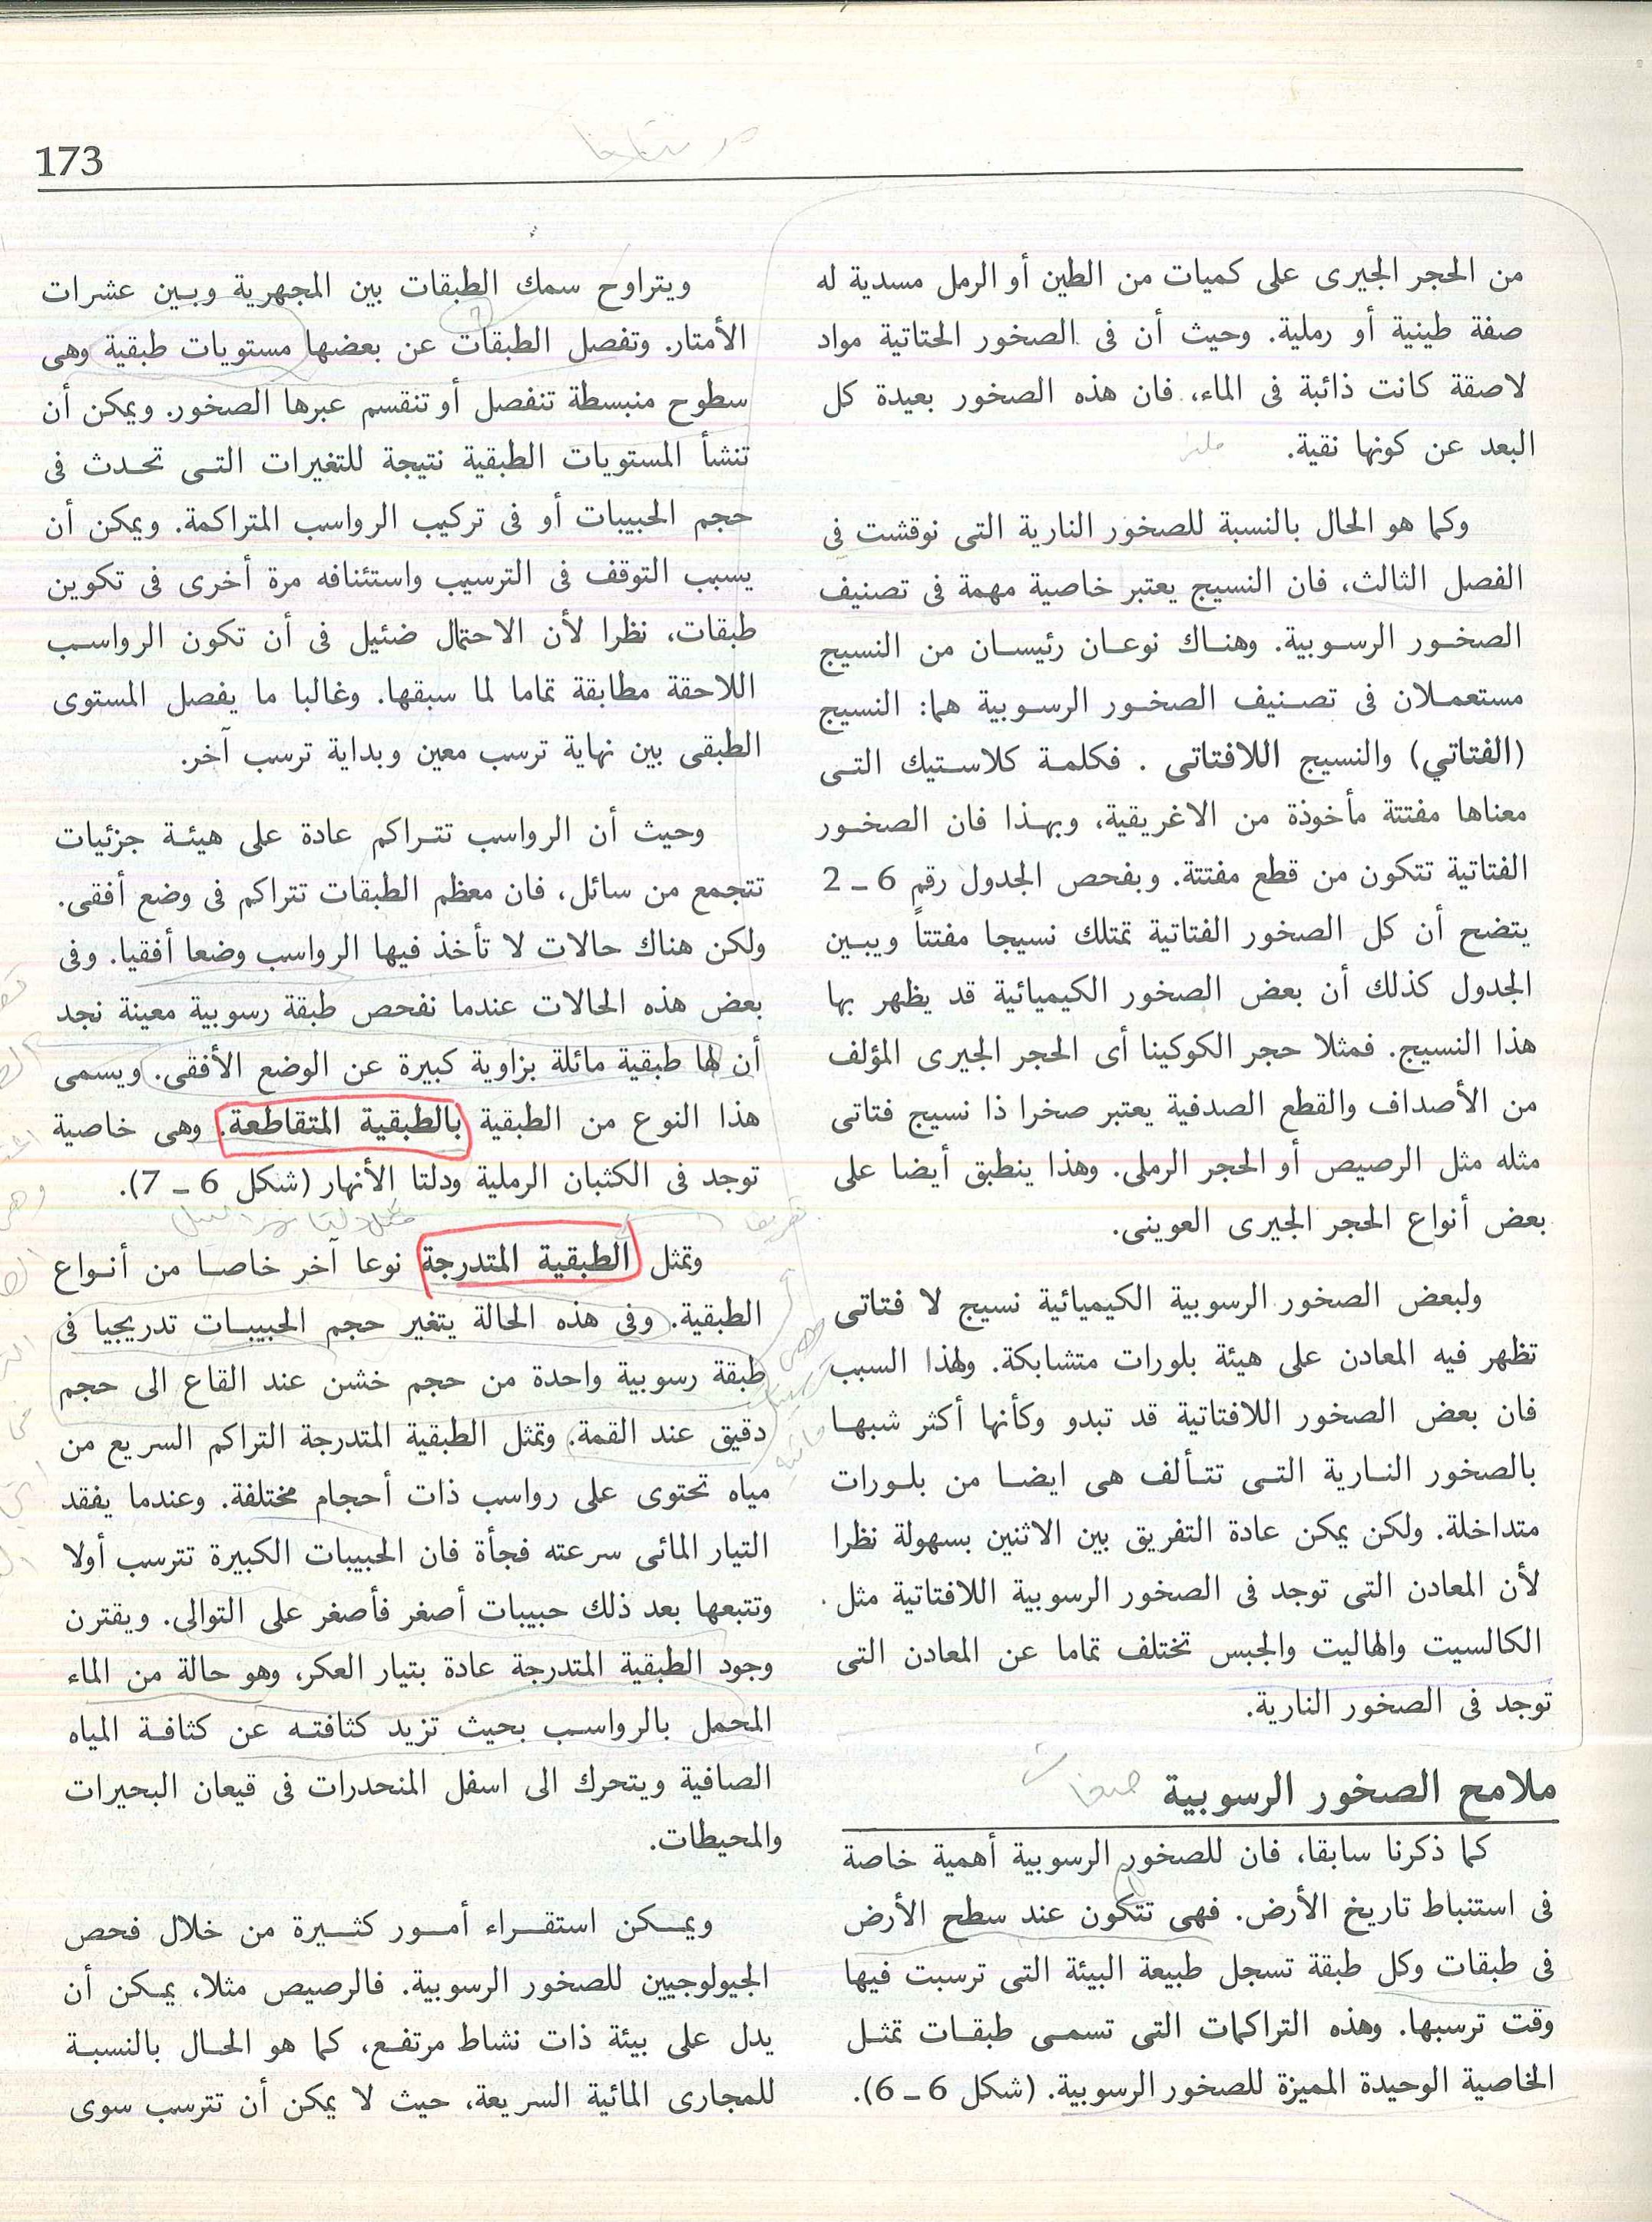 173
من الحجر الجيرى على كميات من الطين أو الرمل مسدية له
صفة طينية أو رملية. وحيث أن فى الصخور الحتاتية مواد
لاصقة كانت ذائبة فى الماء، فان هذه الصخور بعيدة كل
البعد عن كونها نقية.
وكما هو الحال بالنسبة للصخور النارية التى نوقشت فى
الفصل الثالث، فان النسيج يعتبر خاصية مهمة فى تصنيف
الصخور الرسوبية. وهناك نوعان رئيسان من النسيج
مستعملان فى تصنيف الصخور الرسوبية هما: النسيج
(الفتاتي) والنسيج اللافتاتى . فكلمة كلاستيك التى
معناها مفتتة مأخوذة من الاغريقية، وبهذا فان الصخور
الفتاتية تتكون من قطع مفتتة. وبفحص الجدول رقم 6 ـ 2
يتضح أن كل الصخور الفتاتية تمتلك نسيجا مفتتاً ويبين
الجدول كذلك أن بعض الصخور الكيميائية قد يظهر بها
هذا النسيج. فمثلا حجر الكوكينا أى الحجر الجيرى المؤلف
من الأصداف والقطع الصدفية يعتبر صخرا ذا نسيج فتاتى
مثله مثل الرصيص أو الحجر الرملى. وهذا ينطبق أيضا على
بعض أنواع الحجر الجيرى العوينى.
ولبعض الصخور الرسوبية الكيميائية نسيج لا فتاتى
تظهر فيه المعادن على هيئة بلورات متشابكة. ولهذا السبب
فان بعض الصخور اللافتاتية قد تبدو وكأنها أكثر شبها
بالصخور النارية التى تتألف هى ايضا من بلورات
متداخلة. ولكن يمكن عادة التفريق بين الاثنين بسهولة نظرا
لأن المعادن التى توجد فى الصخور الرسوبية اللافتاتية مثل
الكالسيت والهاليت والجبس تختلف تماما عن المعادن التى
توجد فى الصخور النارية.
ملامح الصخور الرسوبية
كما ذكرنا سابقا، فان للصخور الرسوبية أهمية خاصة
فى استنباط تاريخ الأرض. فهى تتكون عند سطح الأرض
فى طبقات وكل طبقة تسجل طبيعة البيئة التى ترسبت فيها
وقت ترسبها. وهذه التراكمات التى تسمى طبقات تمثل
الخاصية الوحيدة المميزة للصخور الرسوبية. (شكل 6 ـ 6).
ويتراوح سمك الطبقات بين المجهرية وبين عشرات
الأمتار. وتفصل الطبقات عن بعضها مستويات طبقية وهى
سطوح منبسطة تنفصل أو تنقسم عبرها الصخور. ويمكن أن
تنشأ المستويات الطبقية نتيجة للتغيرات التى تحدث فى
حجم الحبيبات أو فى تركيب الرواسب المتراكمة. ويمكن أن
يسبب التوقف فى الترسيب واستئنافه مرة أخرى فى تكوين
طبقات، نظرا لأن الاحتمال ضئيل فى أن تكون الرواسب
اللاحقة مطابقة تماما لما سبقها. وغالبا ما يفصل المستوى
الطبقى بين نهاية ترسب معين وبداية ترسب آخر.
وحيث أن الرواسب تتراكم عادة على هيئة جزئيات
تتجمع من سائل، فان معظم الطبقات تتراكم فى وضع أفقى.
ولكن هناك حالات لا تأخذ فيها الرواسب وضعا أفقيا. وفى
بعض هذه الحالات عندما نفحص طبقة رسوبية معينة نجد
أن لها طبقية مائلة بزاوية كبيرة عن الوضع الأفقى. ويسمى
هذا النوع من الطبقية بالطبقية المتقاطعة. وهى خاصية
توجد فى الكثبان الرملية ودلتا الأنهار (شكل 6 ـ 7).
وتمثل الطبقية المتدرجة نوعا آخر خاصا من أنواع
الطبقية. وفى هذه الحالة يتغير حجم الحبيبات تدريجيا فى
طبقة رسوبية واحدة من حجم خشن عند القاع الى حجم
دقيق عند القمة. وتمثل الطبقية المتدرجة التراكم السريع من
مياه تحتوى على رواسب ذات أحجام مختلفة. وعندما يفقد
التيار المائى سرعته فجأة فان الحبيبات الكبيرة تترسب أولا
وتتبعها بعد ذلك حبيبات أصغر فأصغر على التوالى. ويقترن
وجود الطبقية المتدرجة عادة بتيار العكر، وهو حالة من الماء
المحمل بالرواسب بحيث تزيد كثافته عن كثافة المياه
الصافية ويتحرك الى اسفل المنحدرات فى قيعان البحيرات
والمحيطات.
ويمكن استقراء أمور كثيرة من خلال فحص
الجيولوجيين للصخور الرسوبية. فالرصيص مثلا، يمكن أن
يدل على بيئة ذات نشاط مرتفع، كما هو الحال بالنسبة
للمجارى المائية السريعة، حيث لا يمكن أن تترسب سوى